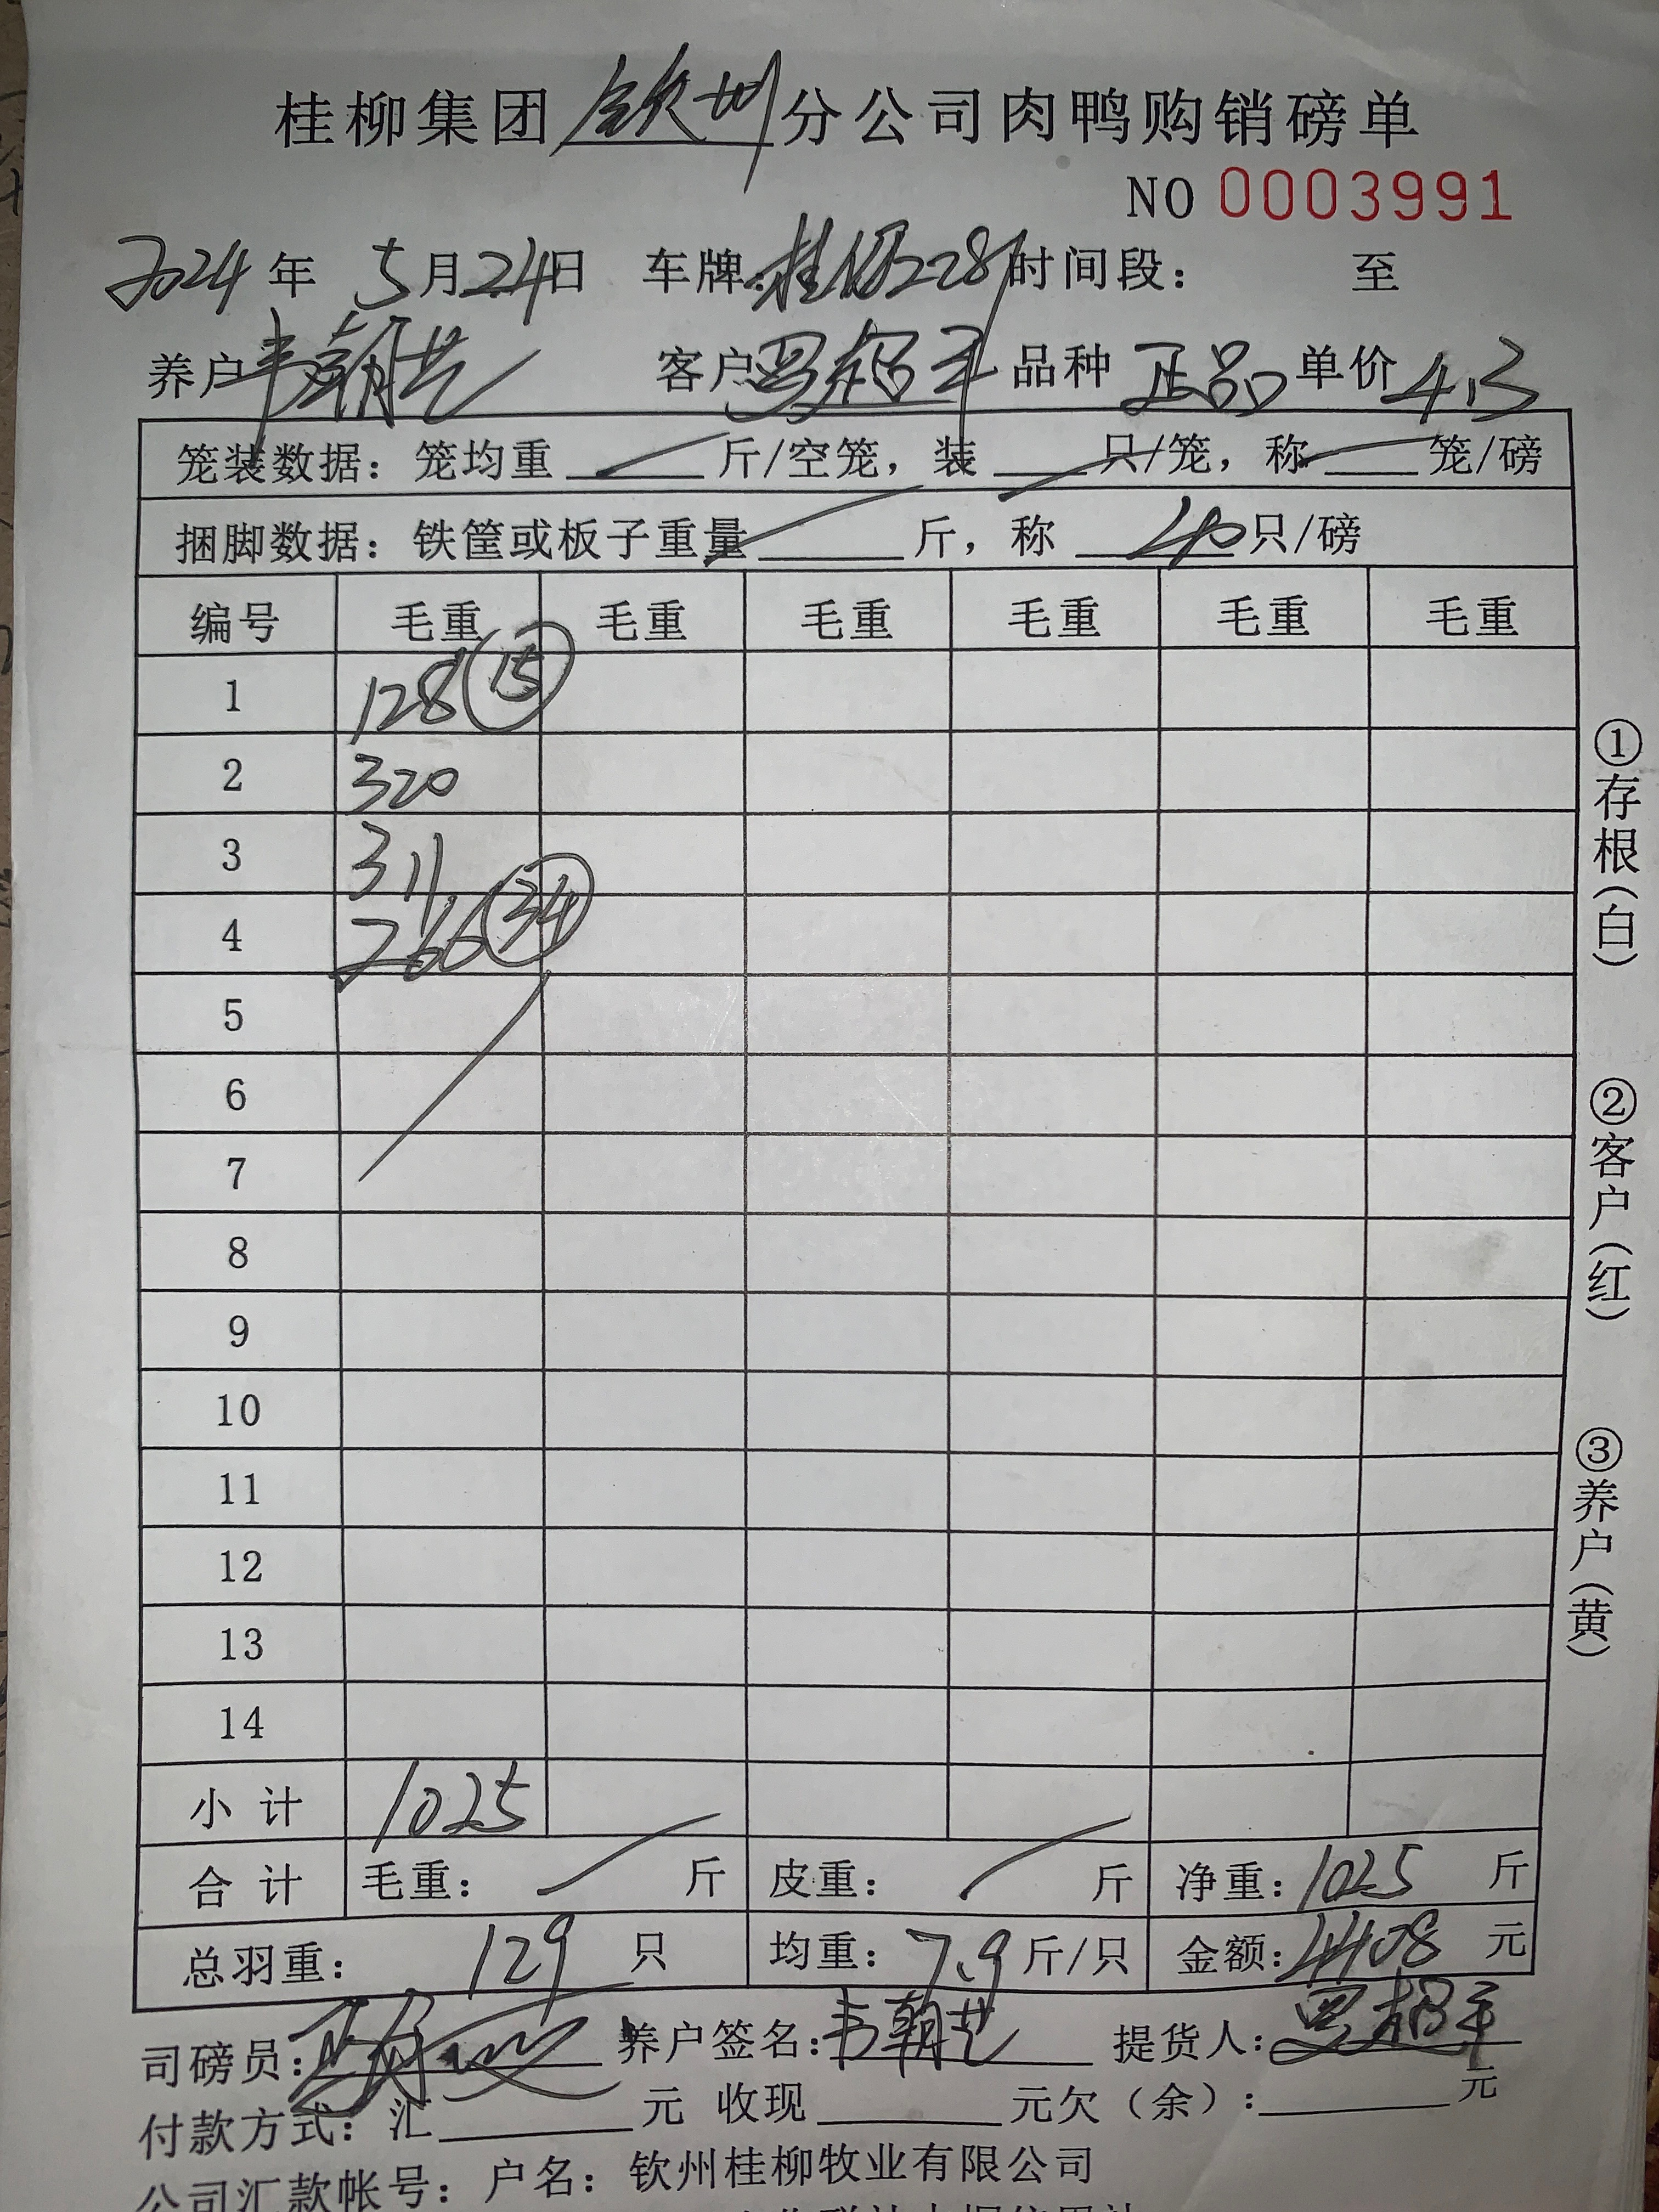 桂柳集团钦州分公司肉鸭购销磅单
NO 0003991
2024年 5月24日 车牌: 时间段: 至
养户韦朝艺 客户罗超平 品种 正品 单价 4.3
笼装数据: 笼均重 斤/空笼, 装 只/笼, 称 笼/磅
捆脚数据: 铁筐或板子重量 斤, 称 40 只/磅
编号 毛重 毛重 毛重 毛重 毛重 毛重
1 128 15
2 320
3 311
4 266 34
5
6
7
8
9
10
11
12
13
14
小计 1025
合计 毛重: 斤 皮重: 斤 净重: 1025 斤
总羽重: 129 只 均重: 7.9 斤/只 金额: 4408 元
司磅员: 养户签名: 韦朝艺 提货人: 罗超平
付款方式: 汇 元 收现 元欠(余): 元
公司汇款帐号: 户名: 钦州桂柳牧业有限公司
①存根(白)
②客户(红)
③养户(黄)